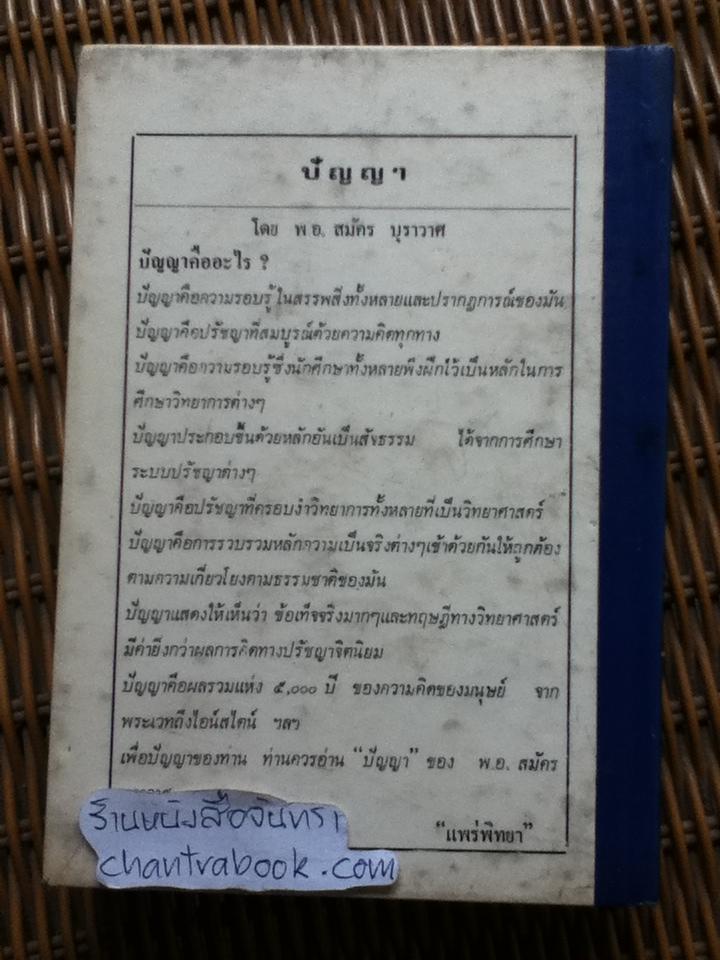 ปัญญา
โดย พ.อ. สมัคร บุราวาศ
ปัญญาคืออะไร ?
ปัญญาคือความรอบรู้ในสรรพสิ่งทั้งหลายและปรากฏการณ์ของมัน
ปัญญาคือปรัชญาที่สมบูรณ์ด้วยความคิดทุกทาง
ปัญญาคือความรอบรู้ซึ่งนักศึกษาทั้งหลายพึงฝึกไว้เป็นหลักในการ
ศึกษาวิทยาการต่างๆ
ปัญญาประกอบขึ้นด้วยหลักอันเป็นสัจธรรม ได้จากการศึกษา
ระบบปรัชญาต่างๆ
ปัญญาคือปรัชญาที่ครอบงำวิทยาการทั้งหลายที่เป็นวิทยาศาสตร์
ปัญญาคือการรวบรวมหลักความเป็นจริงต่างๆเข้าด้วยกันให้ถูกต้อง
ตามความเกี่ยวโยงตามธรรมชาติของมัน
ปัญญาแสดงให้เห็นว่า ข้อเท็จจริงมากๆและทฤษฎีทางวิทยาศาสตร์
มีค่ายิ่งกว่าผลการคิดทางปรัชญาจิตนิยม
ปัญญาคือผลรวมแห่ง ๕,๐๐๐ ปี ของความคิดของมนุษย์ จาก
พระเวทถึงไอน์สไตน์ ฯลฯ
เพื่อปัญญาของท่าน ท่านควรอ่าน "ปัญญา" ของ พ.อ. สมัคร
"แพร่พิทยา"
ร้านหนังสือจันทรา
chantrabook.com